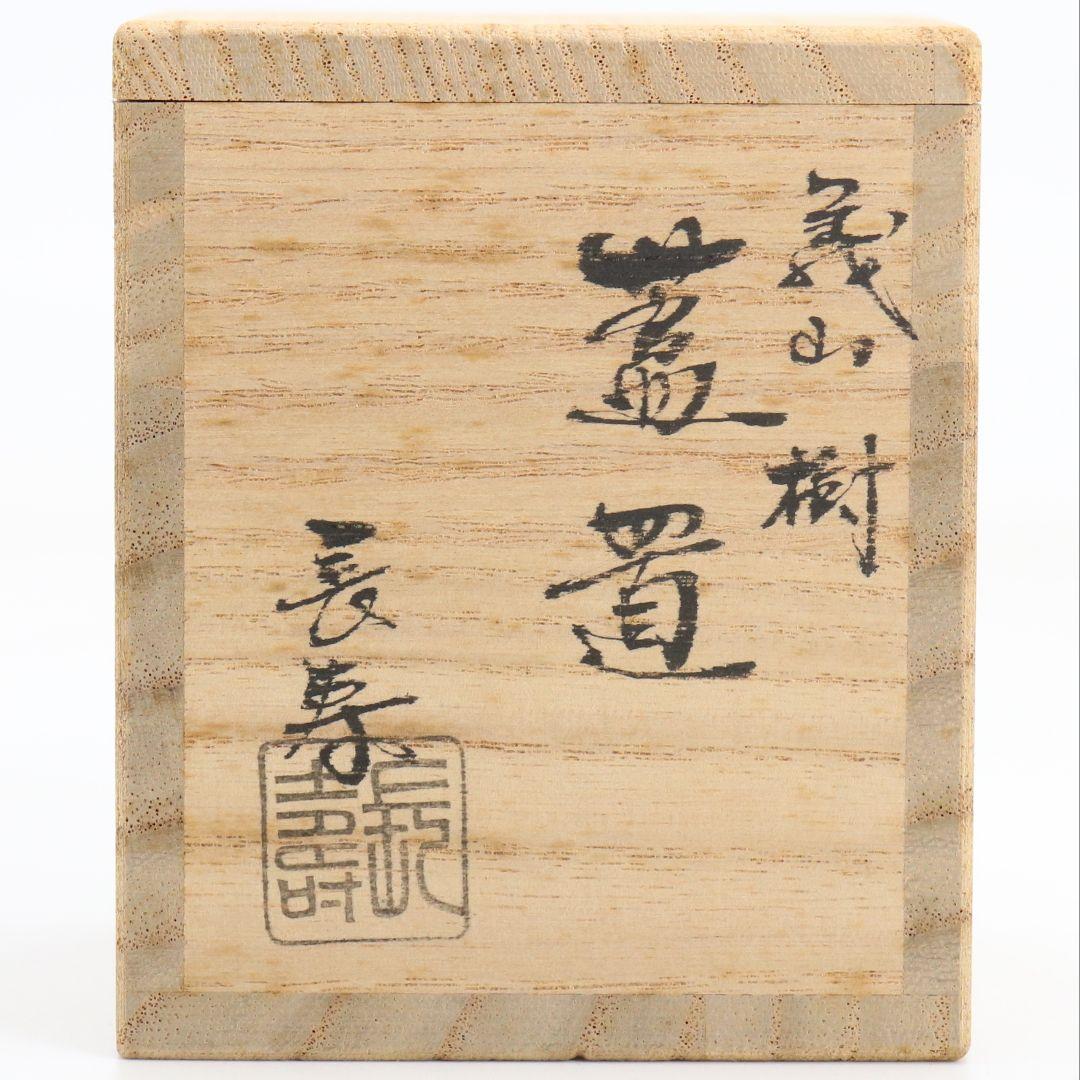 義山樹
蓋置
長寿
長壽